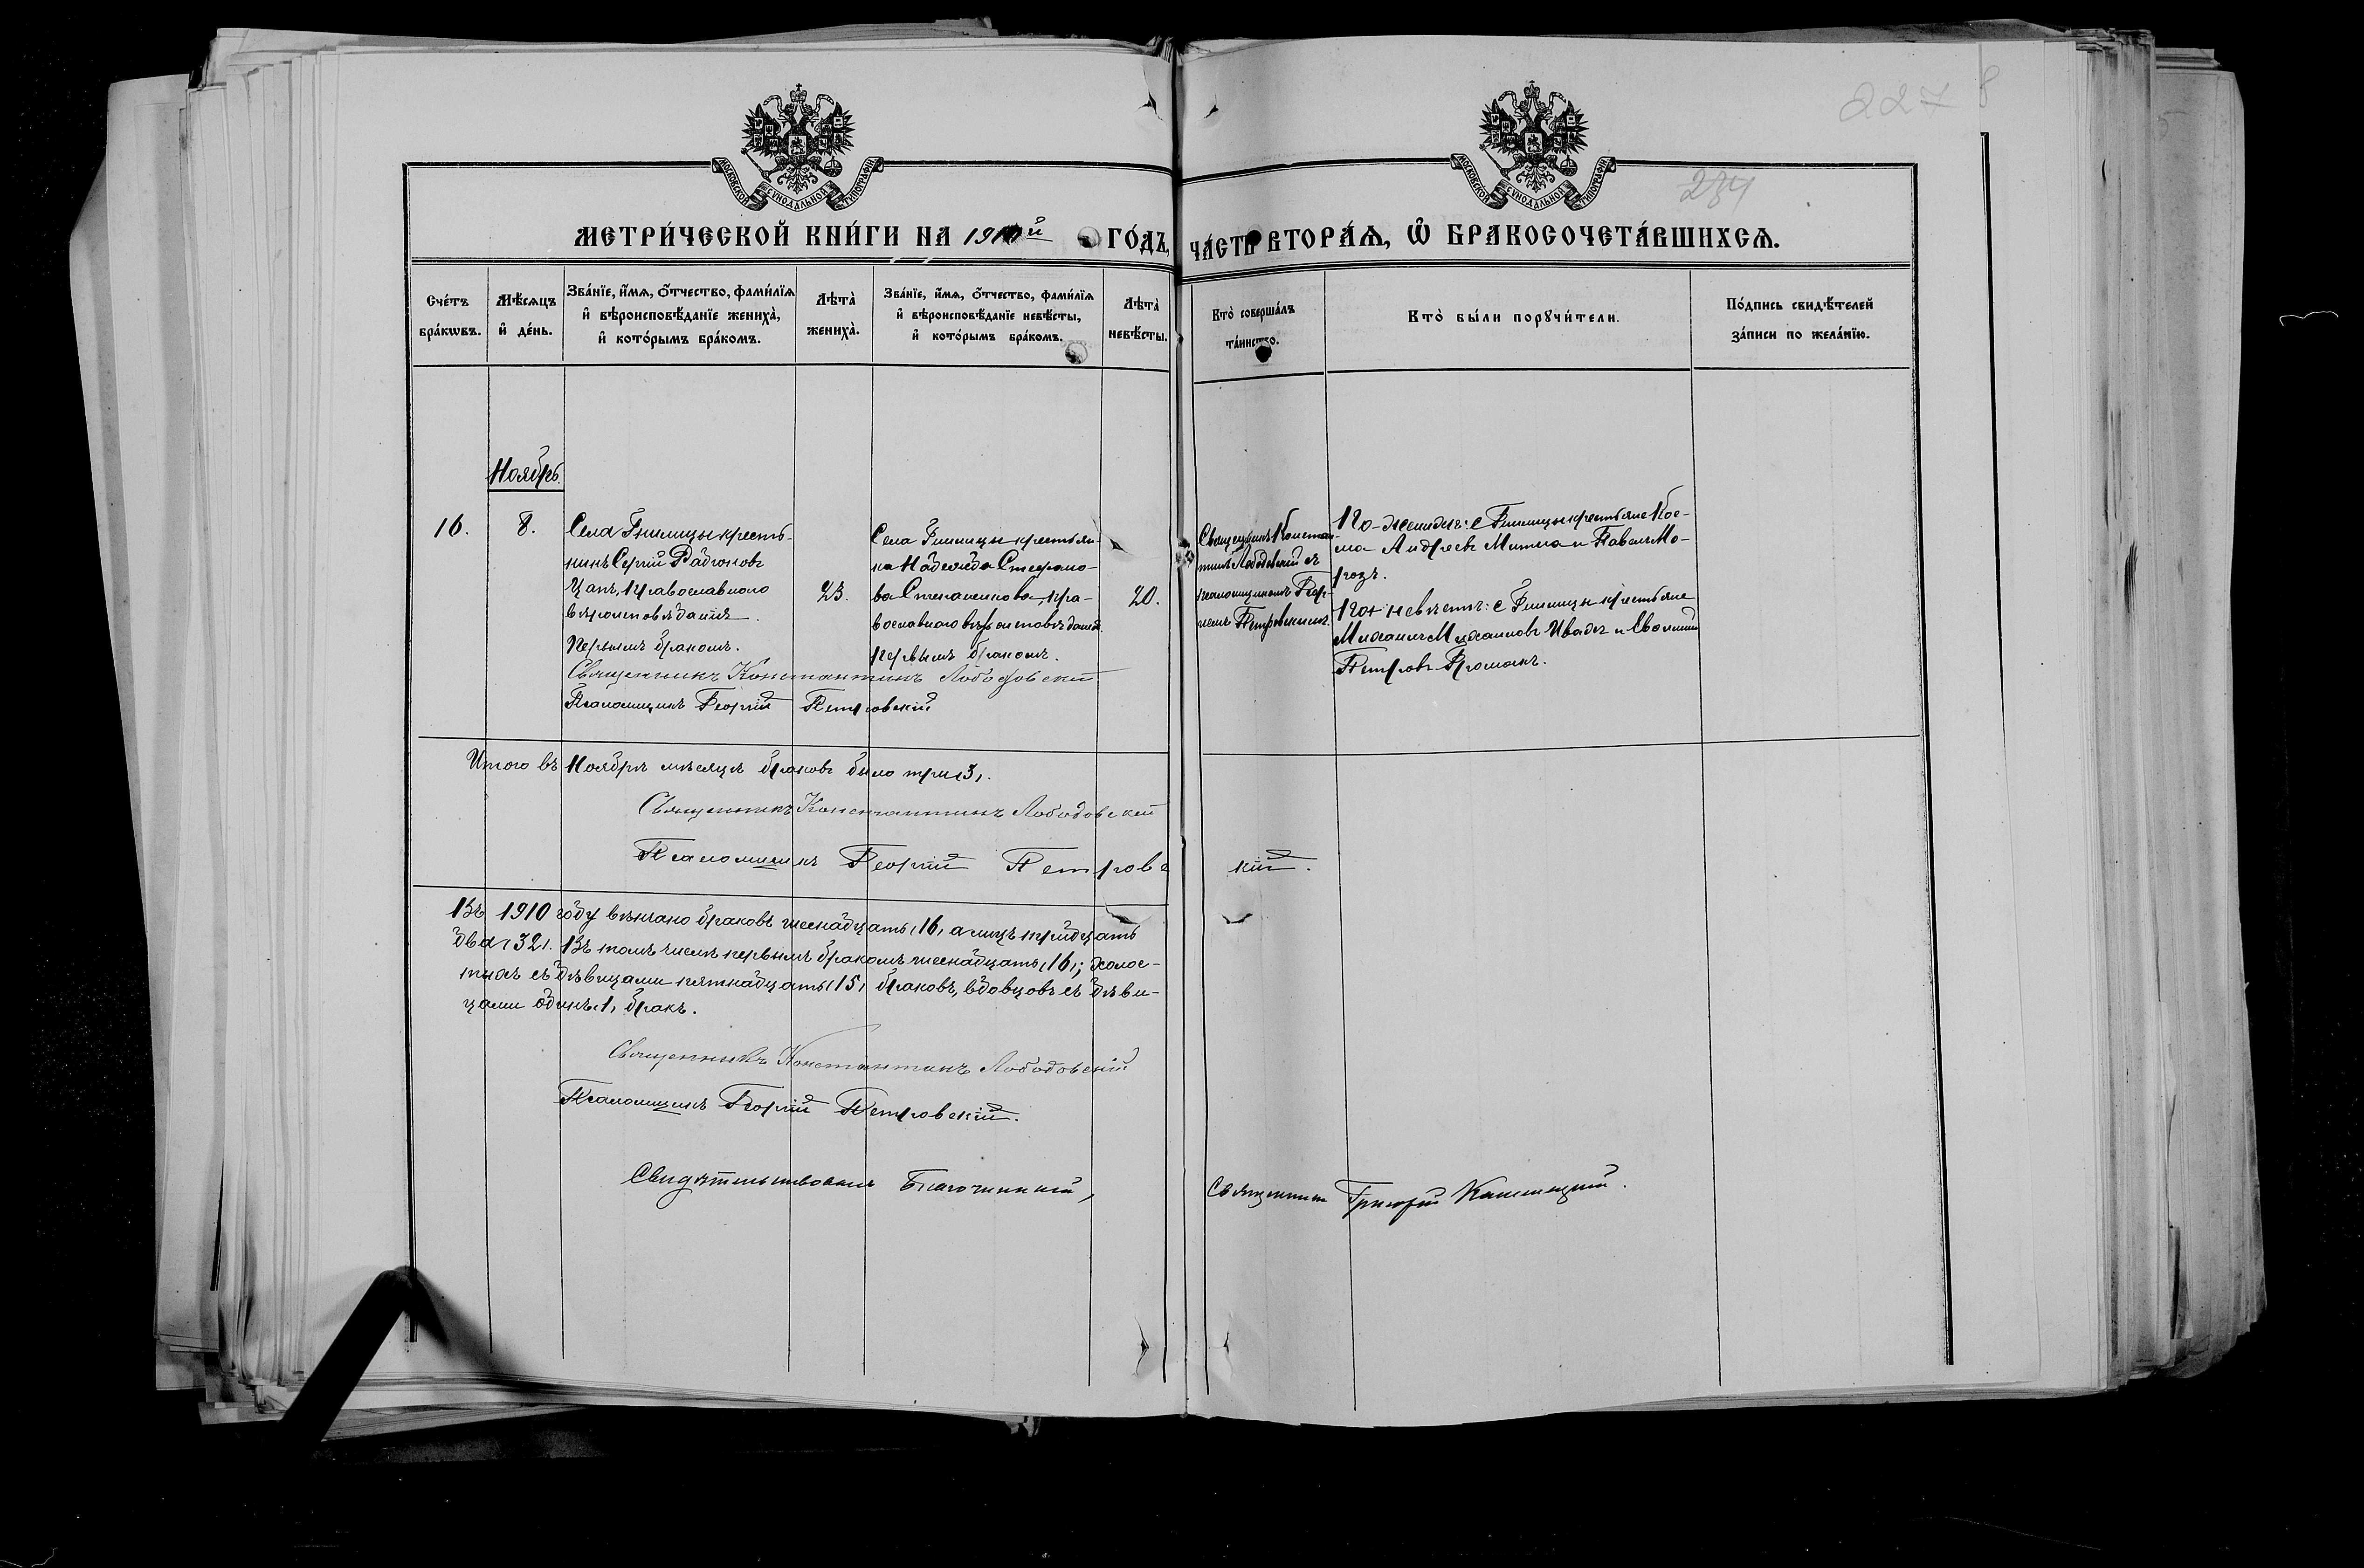 227 8
234
МОСКОВСКОЙ СѴНОДАЛЬНОЙ ТИПОГРАФІИ
МОСКОВСКОЙ СѴНОДАЛЬНОЙ ТИПОГРАФІИ
МЕТРИ́ЧЕСКОЙ КНИ́ГИ НА 1910й ГО́ДЪ, ЧА́СТЬ ВТОРА́Ѧ, Ѽ БРАКОСОЧЕТА́ВШИХСѦ.
Сче́тъ бра́кѡвъ.
Мѣ́сѧцъ и҆ де́нь.
Зва́нїе, и҆́мѧ, ѻ҆́тчество, фами́лїѧ и҆ вѣроисповѣ́данїе жениха̀, и҆ кото́рымъ бра́комъ.
Лѣта̀ жениха̀.
Зва́нїе, и҆́мѧ, ѻ҆́тчество, фами́лїѧ и҆ вѣроисповѣ́данїе невѣ́сты, и҆ кото́рымъ бра́комъ.
Лѣта̀ невѣ́сты.
Кто̀ соверша́лъ та́инство.
Кто̀ бы́ли порꙋчи́тели.
По́дпись свидѣ́телей за́писи по жела́нїю.
Ноябрь.
16.
8.
Села Гнилицы кресть-
нинъ Сергій Радіоновъ
Цапъ, православнаго
вѣроисповѣданія.
Первымъ бракомъ.
23.
Села Гнилицы крестьян-
ка Надежда Стефано-
ва Степаненкова, пра-
вославнаго вѣроисповѣданія.
первымъ бракомъ.
20.
Священникъ Констан-
тинъ Лободовскій съ
псаломщикомъ Геор-
гіемъ Петровскимъ.
По-женихѣ: с Гнилицы крестьяне Кос-
ма Андреевъ и Павелъ Мо-
розъ.
По-невѣстѣ: с Гнилицы крестьяне
Михаилъ Михаиловъ и
Петровъ
Священникъ Константинъ Лободовскій
Псаломщикъ Георгій Петровскій
Итого въ Ноябрѣ мѣсяцѣ браковъ было три (3).
Священникъ Константинъ Лободовскій
Псаломщикъ Георгій Петровскій.
Въ 1910 году вѣнчано браковъ шеснадцать (16) а лицъ тридцать
два (32). Въ томъ числѣ первымъ бракомъ шеснадцать (16); холос-
тыхъ съ дѣвицами пятнадцать (15) браковъ, вдовцовъ съ дѣви-
цами одинъ (1) бракъ.
Священникъ Константинъ Лободовскій
Псаломщикъ Георгій Петровскій.
Свидѣтельствовалъ Благочинный, Священникъ Григорій